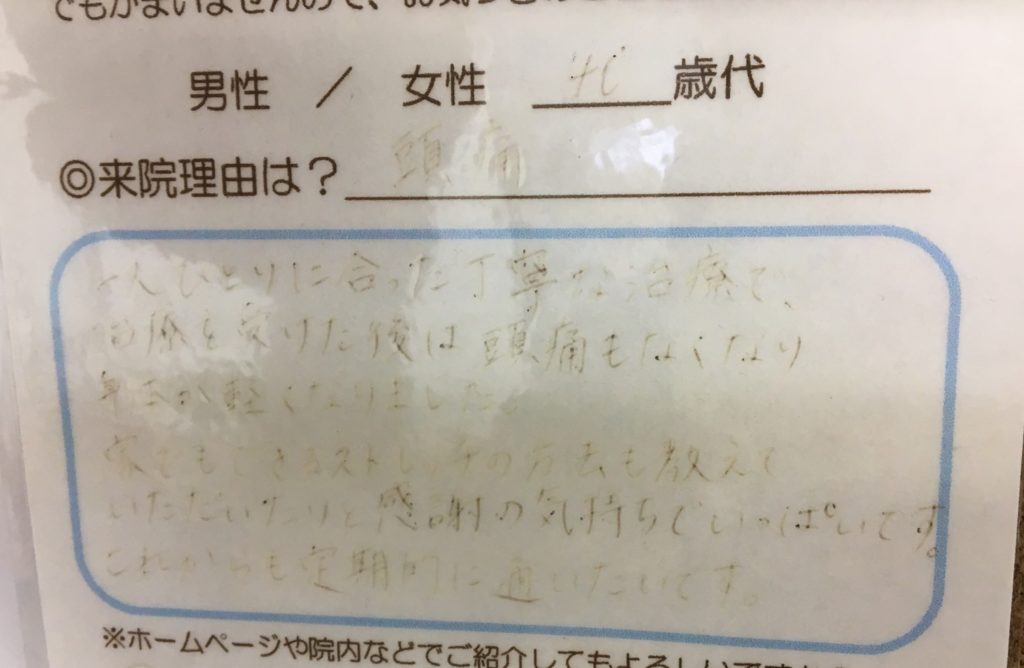 でもかまいませんので、お気
男性 / 女性 歳代
◎来院理由は? 頭痛
一人ひとりに合った丁寧な治療で、
治療を受けた後は頭痛もなくなり
が軽くなりました。
家でもできるストレッチの方法も教えて
いただいたりと感謝の気持ちでいっぱいです。
これからも定期的に通いたいです。
※ホームページや院内などでご紹介してもよろしいですか